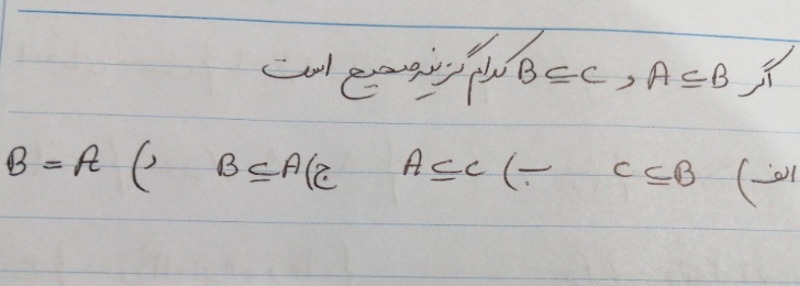 اگر A ⊆ B و B ⊆ C کدام گزینه صحیح است
الف) C ⊆ B ب) A ⊆ C ج) B ⊆ A د) B = A